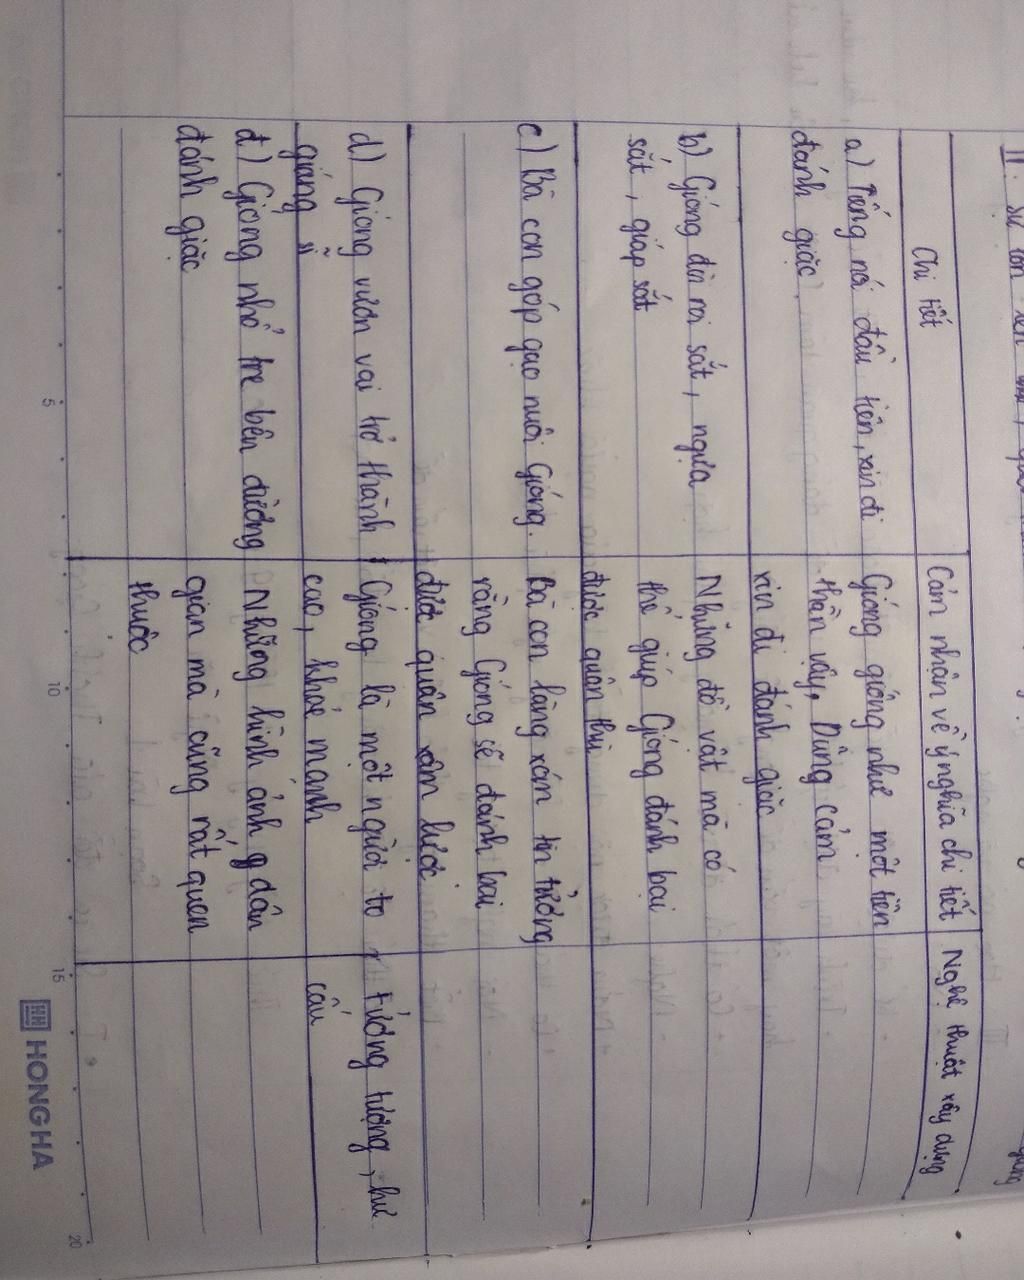 II.
Chi tiết
Cảm nhận về ý nghĩa chi tiết
Nghệ thuật xây dựng
a) Tiếng nói đầu tiên, xin đi
đánh giặc
Gióng giống như một tiên
thần vậy. Dũng cảm
xin đi đánh giặc
b) Gióng đòi roi sắt, ngựa
sắt, giáp sắt
Những đồ vật mà có
thể giúp Gióng đánh bại
được quân thù
c) Bà con góp gạo nuôi Gióng.
Bà con làng xóm tin tưởng
rằng Gióng sẽ đánh bại
được quân xâm lược
d) Gióng vươn vai trở thành t
gióng sĩ
Gióng là một người to
cao, khỏe mạnh
Tưởng tượng, hư
cấu
đ) Gióng nhổ tre bên đường
đánh giặc
Những hình ảnh dân
gian mà cũng rất quen
thuộc
5
10
15
20
HONGHA